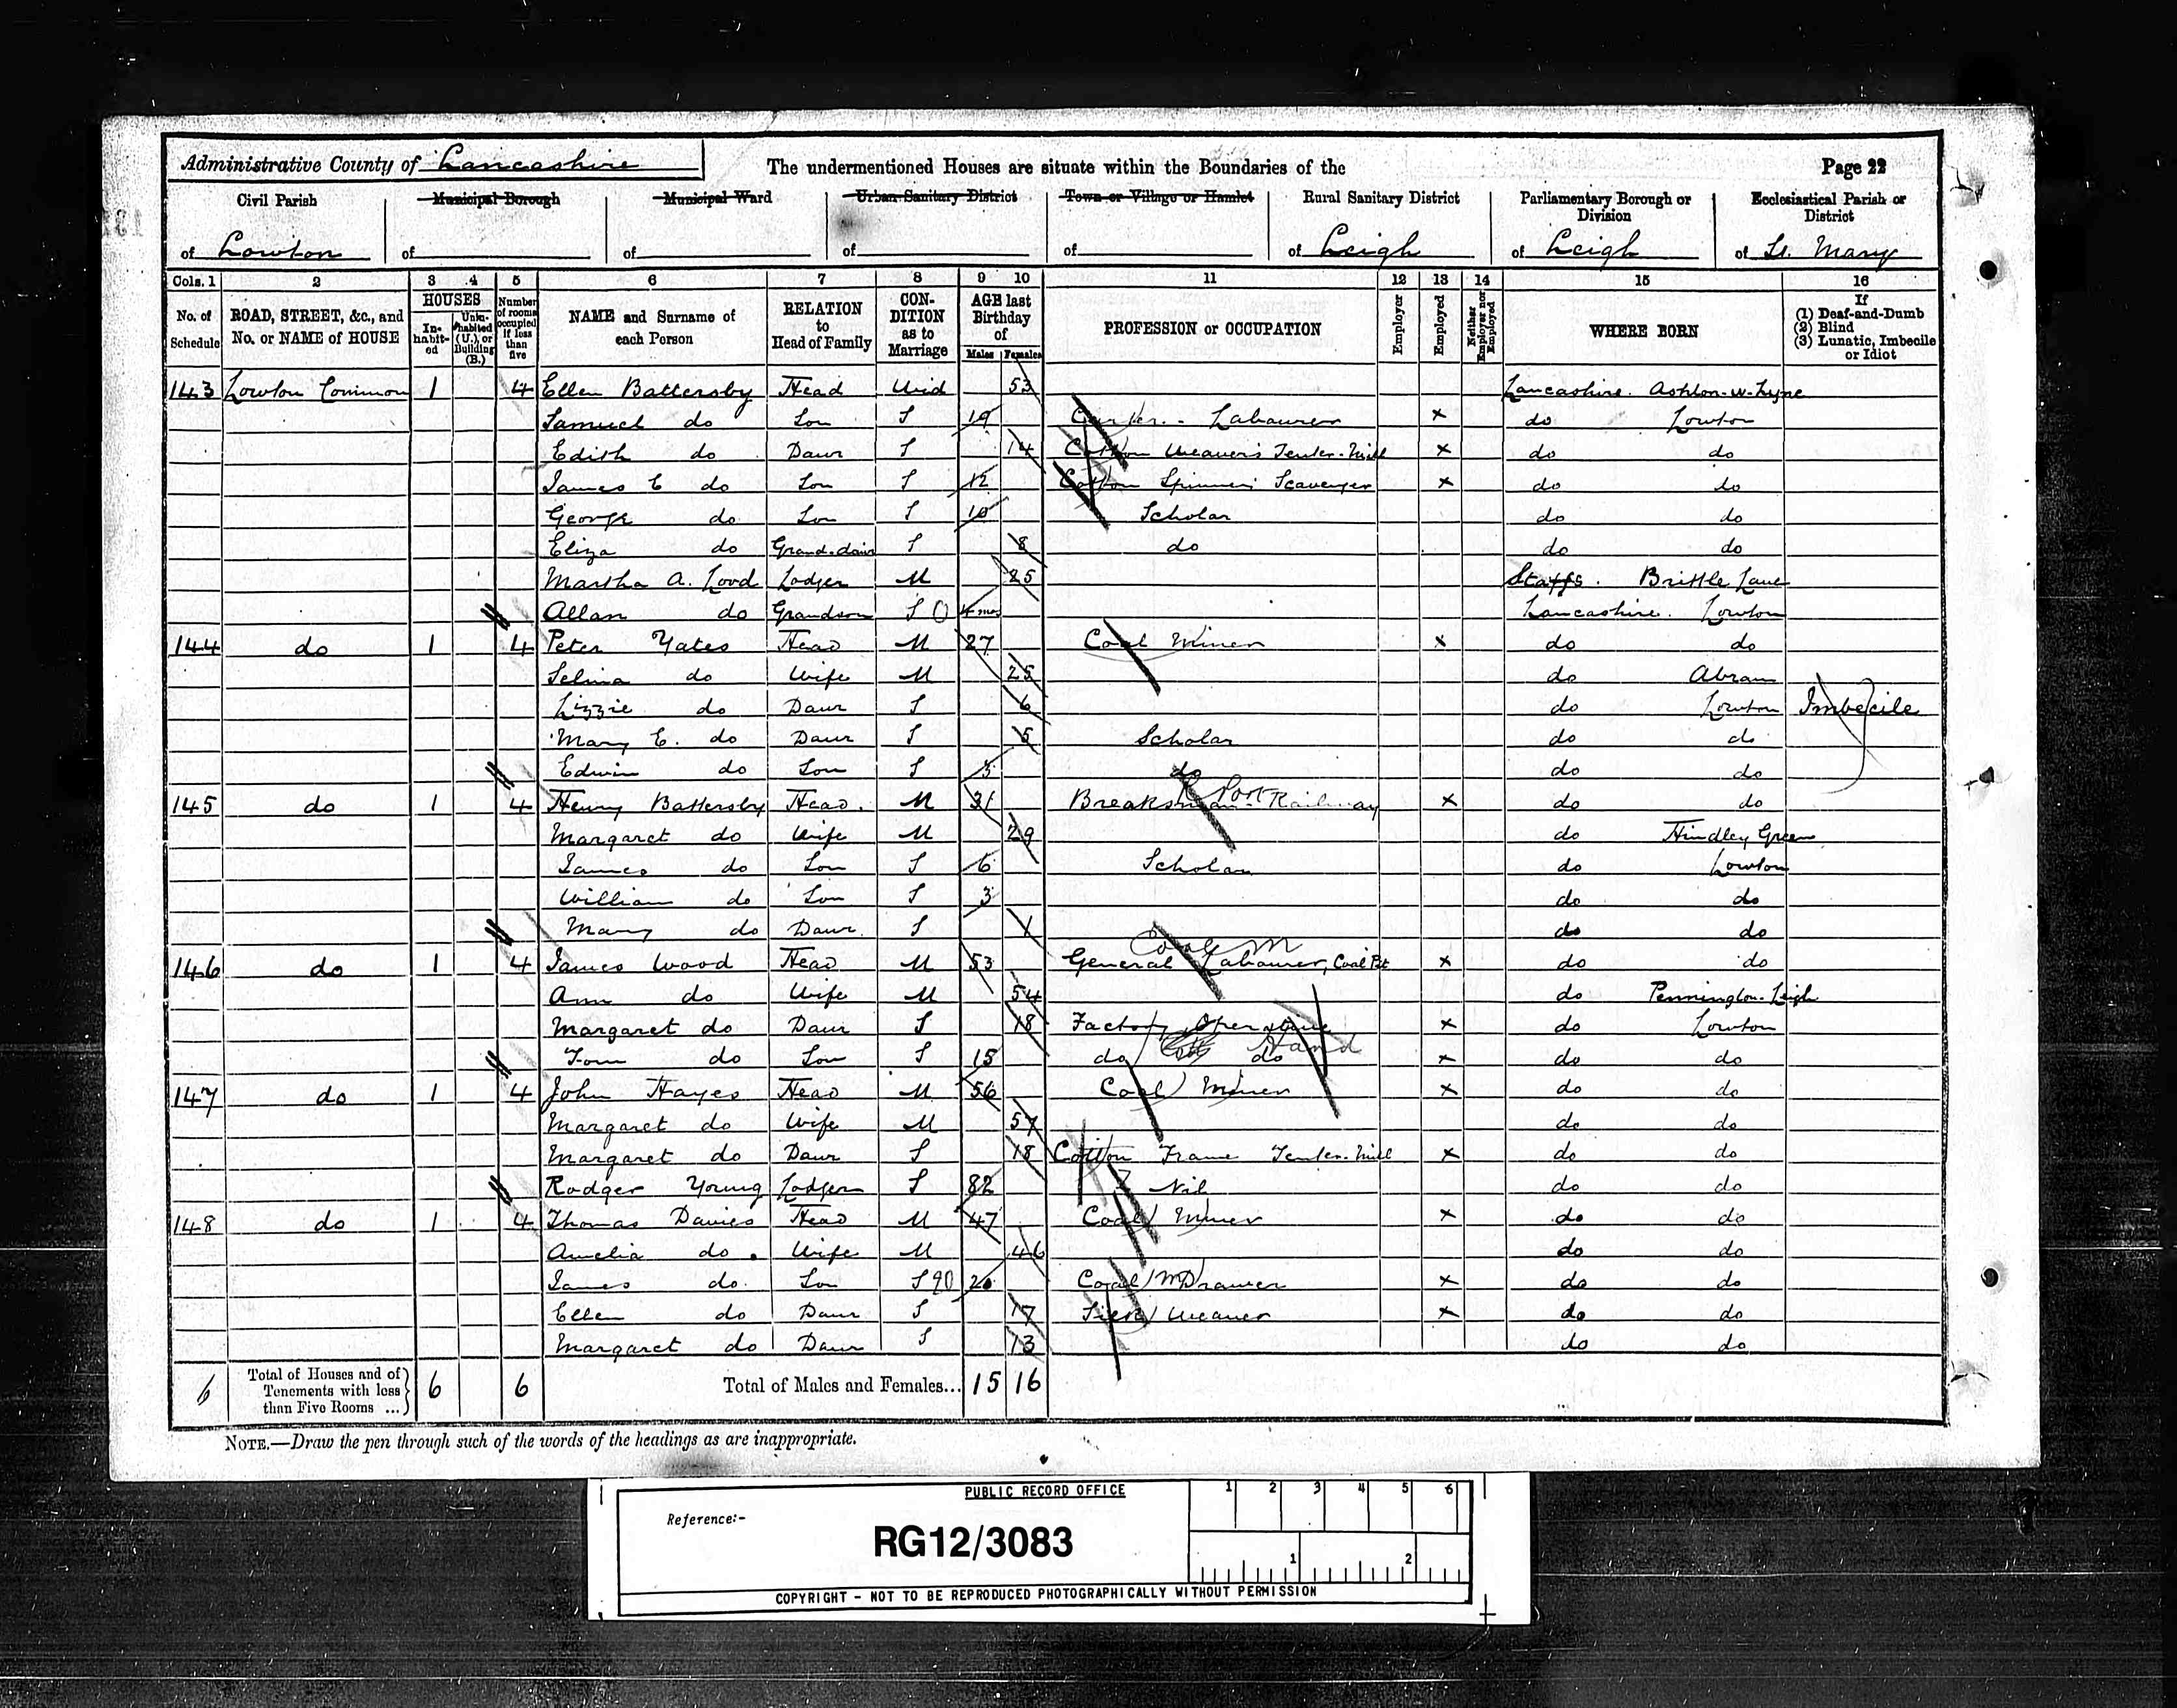 Administrative County of Lancashire The undermentioned Houses are situate within the Boundaries of the Page 22
Civil Parish Municipal Borough Municipal Ward Urban Sanitary District Town or Village or Hamlet Rural Sanitary District Parliamentary Borough or Division Ecclesiastical Parish or District
of Lowton of of of of of Leigh of Leigh of St. Mary
Cols. 1 2 3 4 5 6 7 8 9 10 11 12 13 14 15 16
No. of Schedule ROAD, STREET, &c., and No. or NAME of HOUSE HOUSES Inhabited Uninhabited (U.), or Building (B.) Number of rooms occupied if less than five NAME and Surname of each Person RELATION to Head of Family CONDITION as to Marriage AGE last Birthday of Males Females PROFESSION or OCCUPATION Employer Employed Neither Employer nor Employed WHERE BORN If (1) Deaf-and-Dumb (2) Blind (3) Lunatic, Imbecile or Idiot
143 Lowton Common 1 4 Ellen Battersby Head Wid 53 Lancashire. Ashton-w-Lyne
Samuel do Son S 19 Labourer x do Lowton
Edith do Daur S 14 Cotton Weaver's Tenter-Mill x do do
James E do Son S 12 Cotton Spinners Scavenger x do do
George do Son S 10 Scholar do do
Eliza do Grand-daur S 8 do do do
Martha A. Lord Lodger M 25 Staffs. Brittle Lane
Allan do Grandson S 0 4 mos Lancashire. Lowton
144 do 1 4 Peter Yates Head M 27 Coal Miner x do do
Selina do Wife M 25 do Abram
Lizzie do Daur S 6 do Lowton Imbecile
Mary E. do Daur S 5 Scholar do do
Edwin do Son S 3 do do do
145 do 1 4 Henry Battersby Head. M 31 Breaksman-Railway x do do
Margaret do Wife M 29 do Hindley Green
James do Son S 6 Scholar do Lowton
William do Son S 3 do do
Mary do Daur. S 1 do do
Coal M
146 do 1 4 James Wood Head M 53 General Labourer, Coal Pit x do do
Ann do Wife M 54 do Pennington-Leigh
Margaret do Daur S 18 Factory Operative x do Lowton
Tom do Son S 15 do do Hand x do do
147 do 1 4 John Hayes Head M 56 Coal Miner x do do
Margaret do Wife M 57 do do
Margaret do Daur S 18 Cotton Frame Tenter-Mill x do do
Rodger Young Lodger S 82 Nil do do
148 do 1 4 Thomas Davies Head M 47 Coal Miner x do do
Amelia do Wife M 46 do do
James do. Son S 20 20 Coal M Drawer x do do
Ellen do Daur S 17 Silk Weaver x do do
Margaret do Daur S 13 do do
6 Total of Houses and of Tenements with less than Five Rooms ... 6 6 Total of Males and Females... 15 16
NOTE.—Draw the pen through such of the words of the headings as are inappropriate.
PUBLIC RECORD OFFICE 1 2 3 4 5 6
Reference:-
RG12/3083
1 2
COPYRIGHT - NOT TO BE REPRODUCED PHOTOGRAPHICALLY WITHOUT PERMISSION